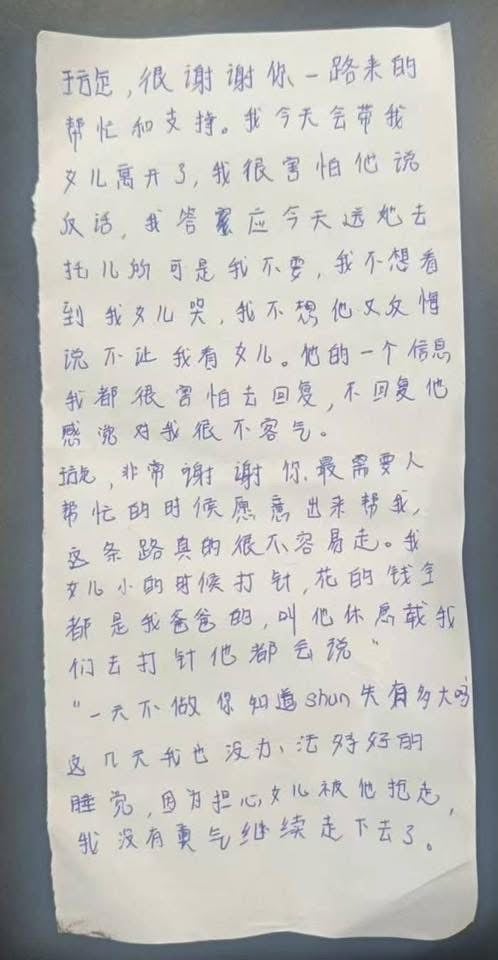 ，很谢谢你一路来的
帮忙和支持。我今天会带我
女儿离开了，我很害怕他说
反话，我答应今天送她去
托儿所可是我不要，我不想看
到我女儿哭，我不想他又反悔
说不让我看女儿。他的一个信息
我都很害怕去回复，不回复他
感觉对我很不客气。
，非常谢谢你，最需要人
帮忙的时候愿意出来帮我，
这条路真的很不容易走。我
女儿小的时候打针，花的钱全
都是我爸爸的，叫他休息载我
们去打针他都会说“
“一天不做你知道shun失有多大吗
这几天我也没办法好好的
睡觉，因为担心女儿被他抱走，
我没有勇气继续走下去了。